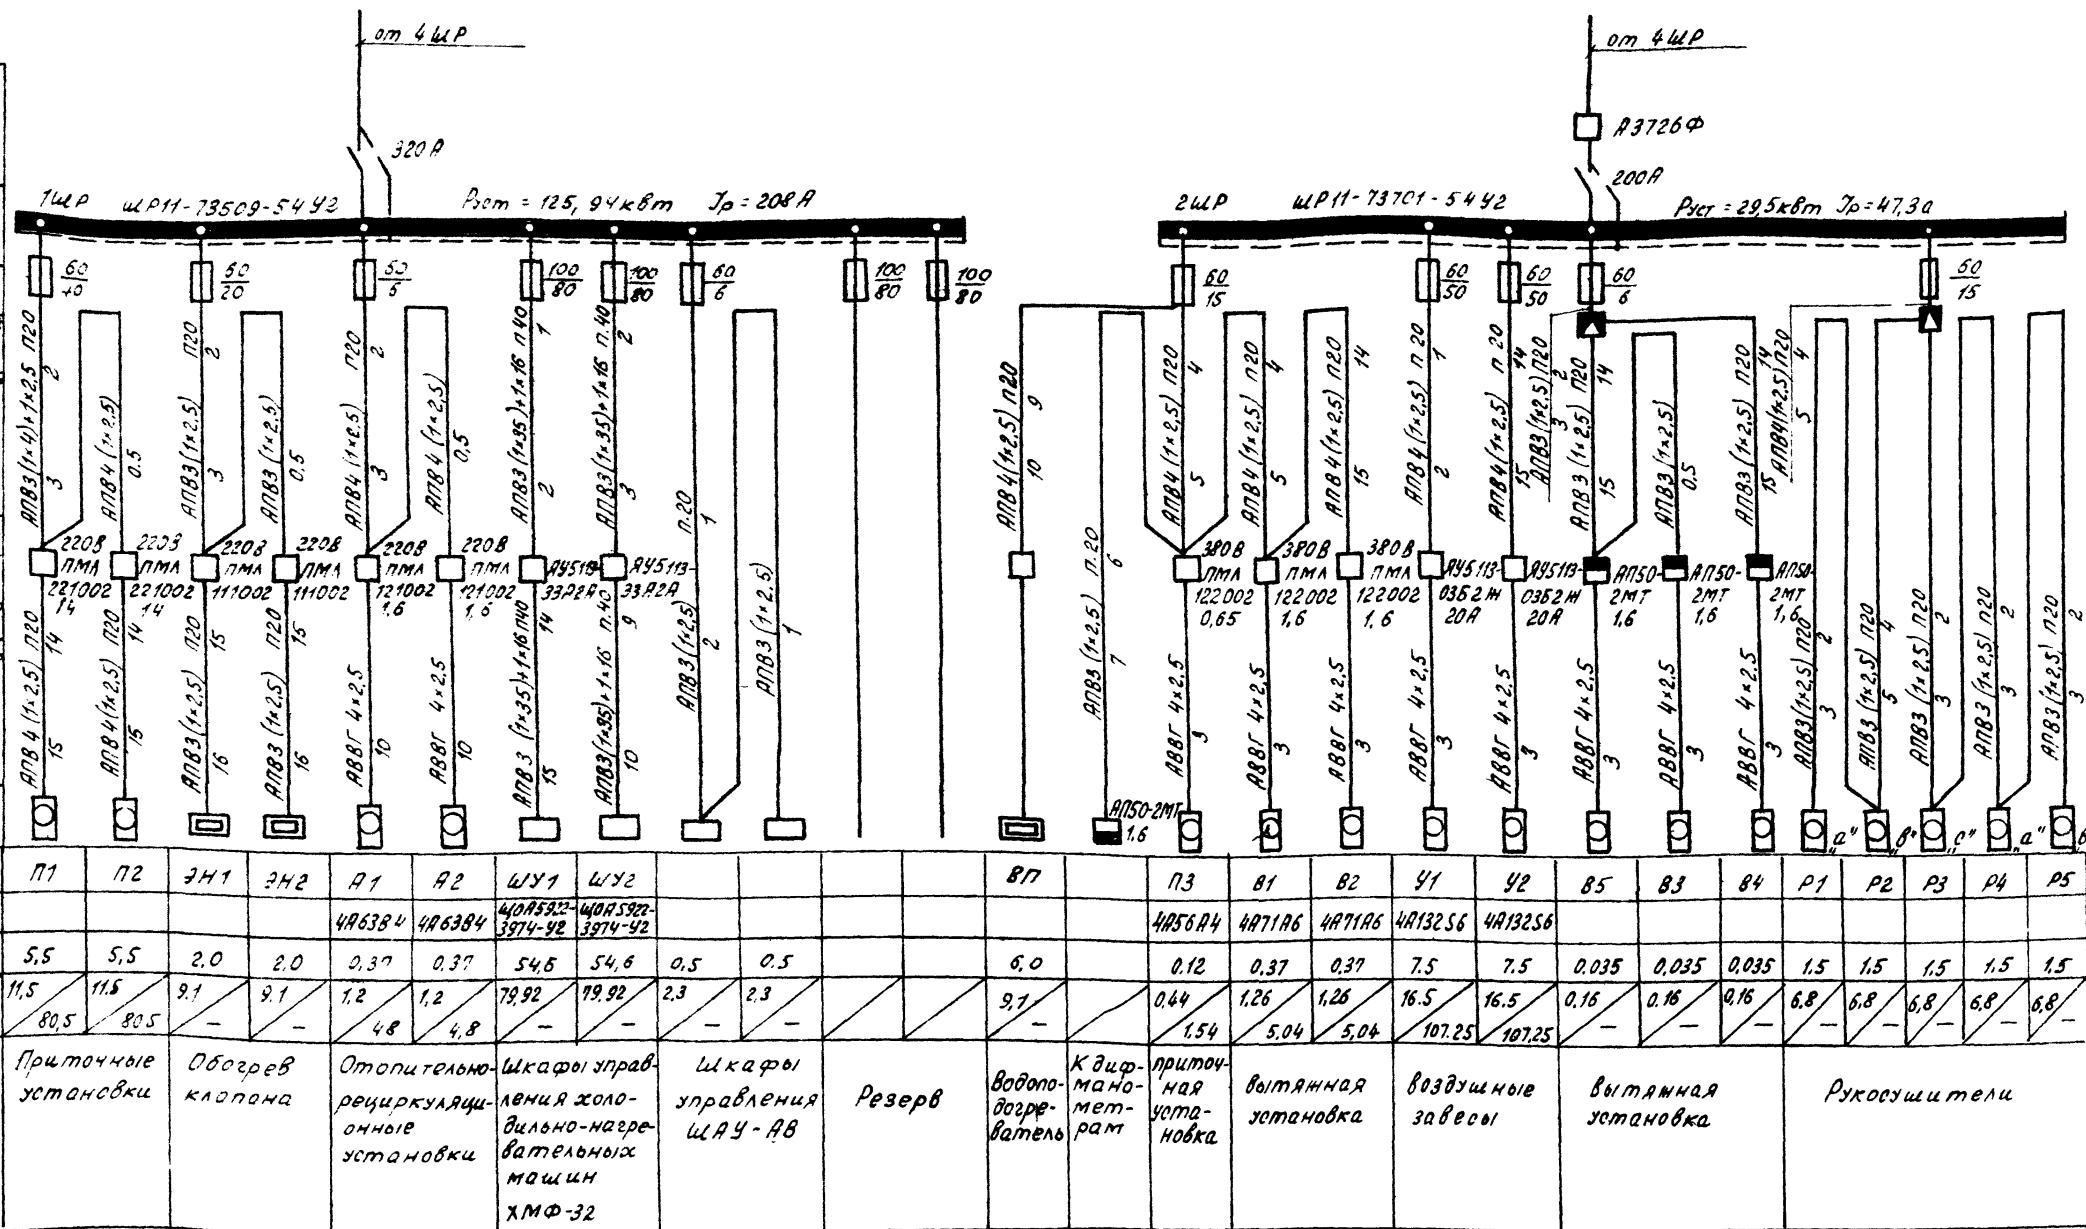 от 4ШР
от 4ШР
320А
А3726Ф
200А
1ШР ШР11-73509-54У2 Руст = 125,94квт Iр=208А
2ШР ШР11-73701-54У2 Руст=29,5квт Iр=47,3а
60/40
60/20
60/6
100/80
100/80
60/6
100/80
100/80
60/15
60/50
60/50
60/6
60/15
АПВ3(1×4)+1×2,5 П20 2 3
АПВ4(1×2,5) 0.5
АПВ3(1×2,5) П20 2 3
АПВ3(1×2,5) 0,5
АПВ4(1×2,5) П20 2 3
АПВ4(1×2,5) 0,5
АПВ3(1×35)+1×16 П40 1 2
АПВ3(1×35)+1×16 П.40 2 3
АПВ3(1×2,5) П.20 1 2
АПВ3(1×2,5) 1
АПВ4(1×2,5) П20 9 10
АПВ3(1×2,5) П.20 6 7
АПВ4(1×2,5) П20 4 5
АПВ4(1×2,5) П20 4 5
АПВ4(1×2,5) П20 14 15
АПВ4(1×2,5) П20 1 2
АПВ4(1×2,5) П 20 14 15
АПВ3(1×2,5) П20 2 3
АПВ3(1×2,5) П20 14 15
АПВ3(1×2,5) 0,5
АПВ3(1×2,5) П20 14 15
АПВ4(1×2,5) П20 4 5
220В ПМЛ 221002 14
220В ПМЛ 221002 14
220В ПМЛ 111002
220В ПМЛ 111002
220В ПМЛ 121002 1,6
220В ПМЛ 121002 1,6
ЯУ5113-33А2А
ЯУ5113-33А2А
380В ПМЛ 122002 0,65
380В ПМЛ 122002 1,6
380В ПМЛ 122002 1,6
ЯУ5113-03Б2Ж 20А
ЯУ5113-03Б2Ж 20А
АП50-2МТ 1,6
АП50-2МТ 1,6
АП50-2МТ 1,6
АПВ4(1×2,5) П20 14 15
АПВ4(1×2,5) П20 14 15
АПВ3(1×2,5) П20 15 16
АПВ3(1×2,5) П20 15 16
АВВГ 4×2,5 10
АВВГ 4×2,5 10
АПВ3(1×35)+1×16 П40 14 15
АПВ3(1×35)+1×16 П.40 9 10
АП50-2МТ 1,6
АВВГ 4×2,5 3
АВВГ 4×2,5 3
АВВГ 4×2,5 3
АВВГ 4×2,5 3
АВВГ 4×2,5 3
АВВГ 4×2,5 3
АВВГ 4×2,5 3
АВВГ 4×2,5 3
АПВ3(1×2,5) П20 2 3
АПВ3(1×2,5) П20 4 5
АПВ3(1×2,5) П20 2 3
АПВ3(1×2,5) П20 2 3
АПВ3(1×2,5) П20 2 3
„а" „в" „с" „а" „в
П1 П2 ЭН1 ЭН2 А1 А2 ШУ1 ШУ2 ВП П3 В1 В2 У1 У2 В5 В3 В4 Р1 Р2 Р3 Р4 Р5
4А63В4 4А63В4 ЩОА5922-3974-У2 ЩОА5922-3974-У2 4А56А4 4А71А6 4А71А6 4А132S6 4А132S6
5,5 5,5 2,0 2,0 0,37 0,37 54,6 54,6 0,5 0.5 6,0 0.12 0,37 0,37 7.5 7.5 0.035 0,035 0,035 1.5 1.5 1.5 1.5 1.5
11,5 11.5 9.1 9.1 1,2 1,2 79,92 79.92 2,3 2,3 9,1 0,44 1,26 1,26 16.5 16.5 0,16 0.16 0,16 6,8 6,8 6,8 6,8 6,8
80,5 80.5 – – 4.8 4,8 – – – – – 1.54 5,04 5,04 107.25 107,25 – – – – – – – –
Приточные
установки
Обогрев
клапана
Отопительно-
рециркуляци-
онные
установки
Шкафы управ-
ления холо-
дильно-нагре-
вательных
машин
ХМФ-32
Шкафы
управления
ШАУ-АВ
Резерв
Водопо-
догре-
ватель
К диф-
мано-
мет-
рам
Приточ-
ная
уста-
новка
Вытяжная
установка
Воздушные
завесы
Вытяжная
установка
Рукосушители